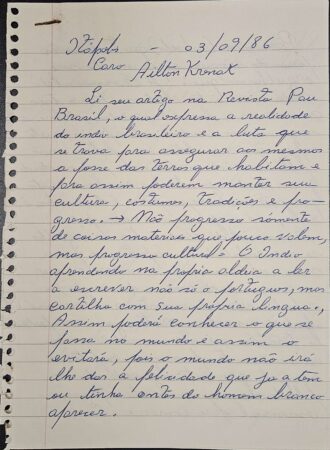 Itápolis - 03/09/86
Caro Ailton Krenak
Li seu artigo na Revista Pau
Brasil, o qual expressa a realidade
do indio brasileiro e a luta que
se trava para assegurar aos mesmos
a posse das terras que habitam e
para assim poderem manter sua
cultura, costumes, tradições e pro-
gresso. → Não progresso somente
de coisas materiais que pouco valem,
mas progresso cultural = O Indio
aprendendo na própria aldeia a ler
a escrever não só o português, mas
cartilha com sua própria lingua.,
Assim poderá conhecer o que se
passa no mundo e assim o
evitará, pois o mundo não irá
lhe dar a felicidade que já a tem
ou tinha antes do homem branco
aparecer.